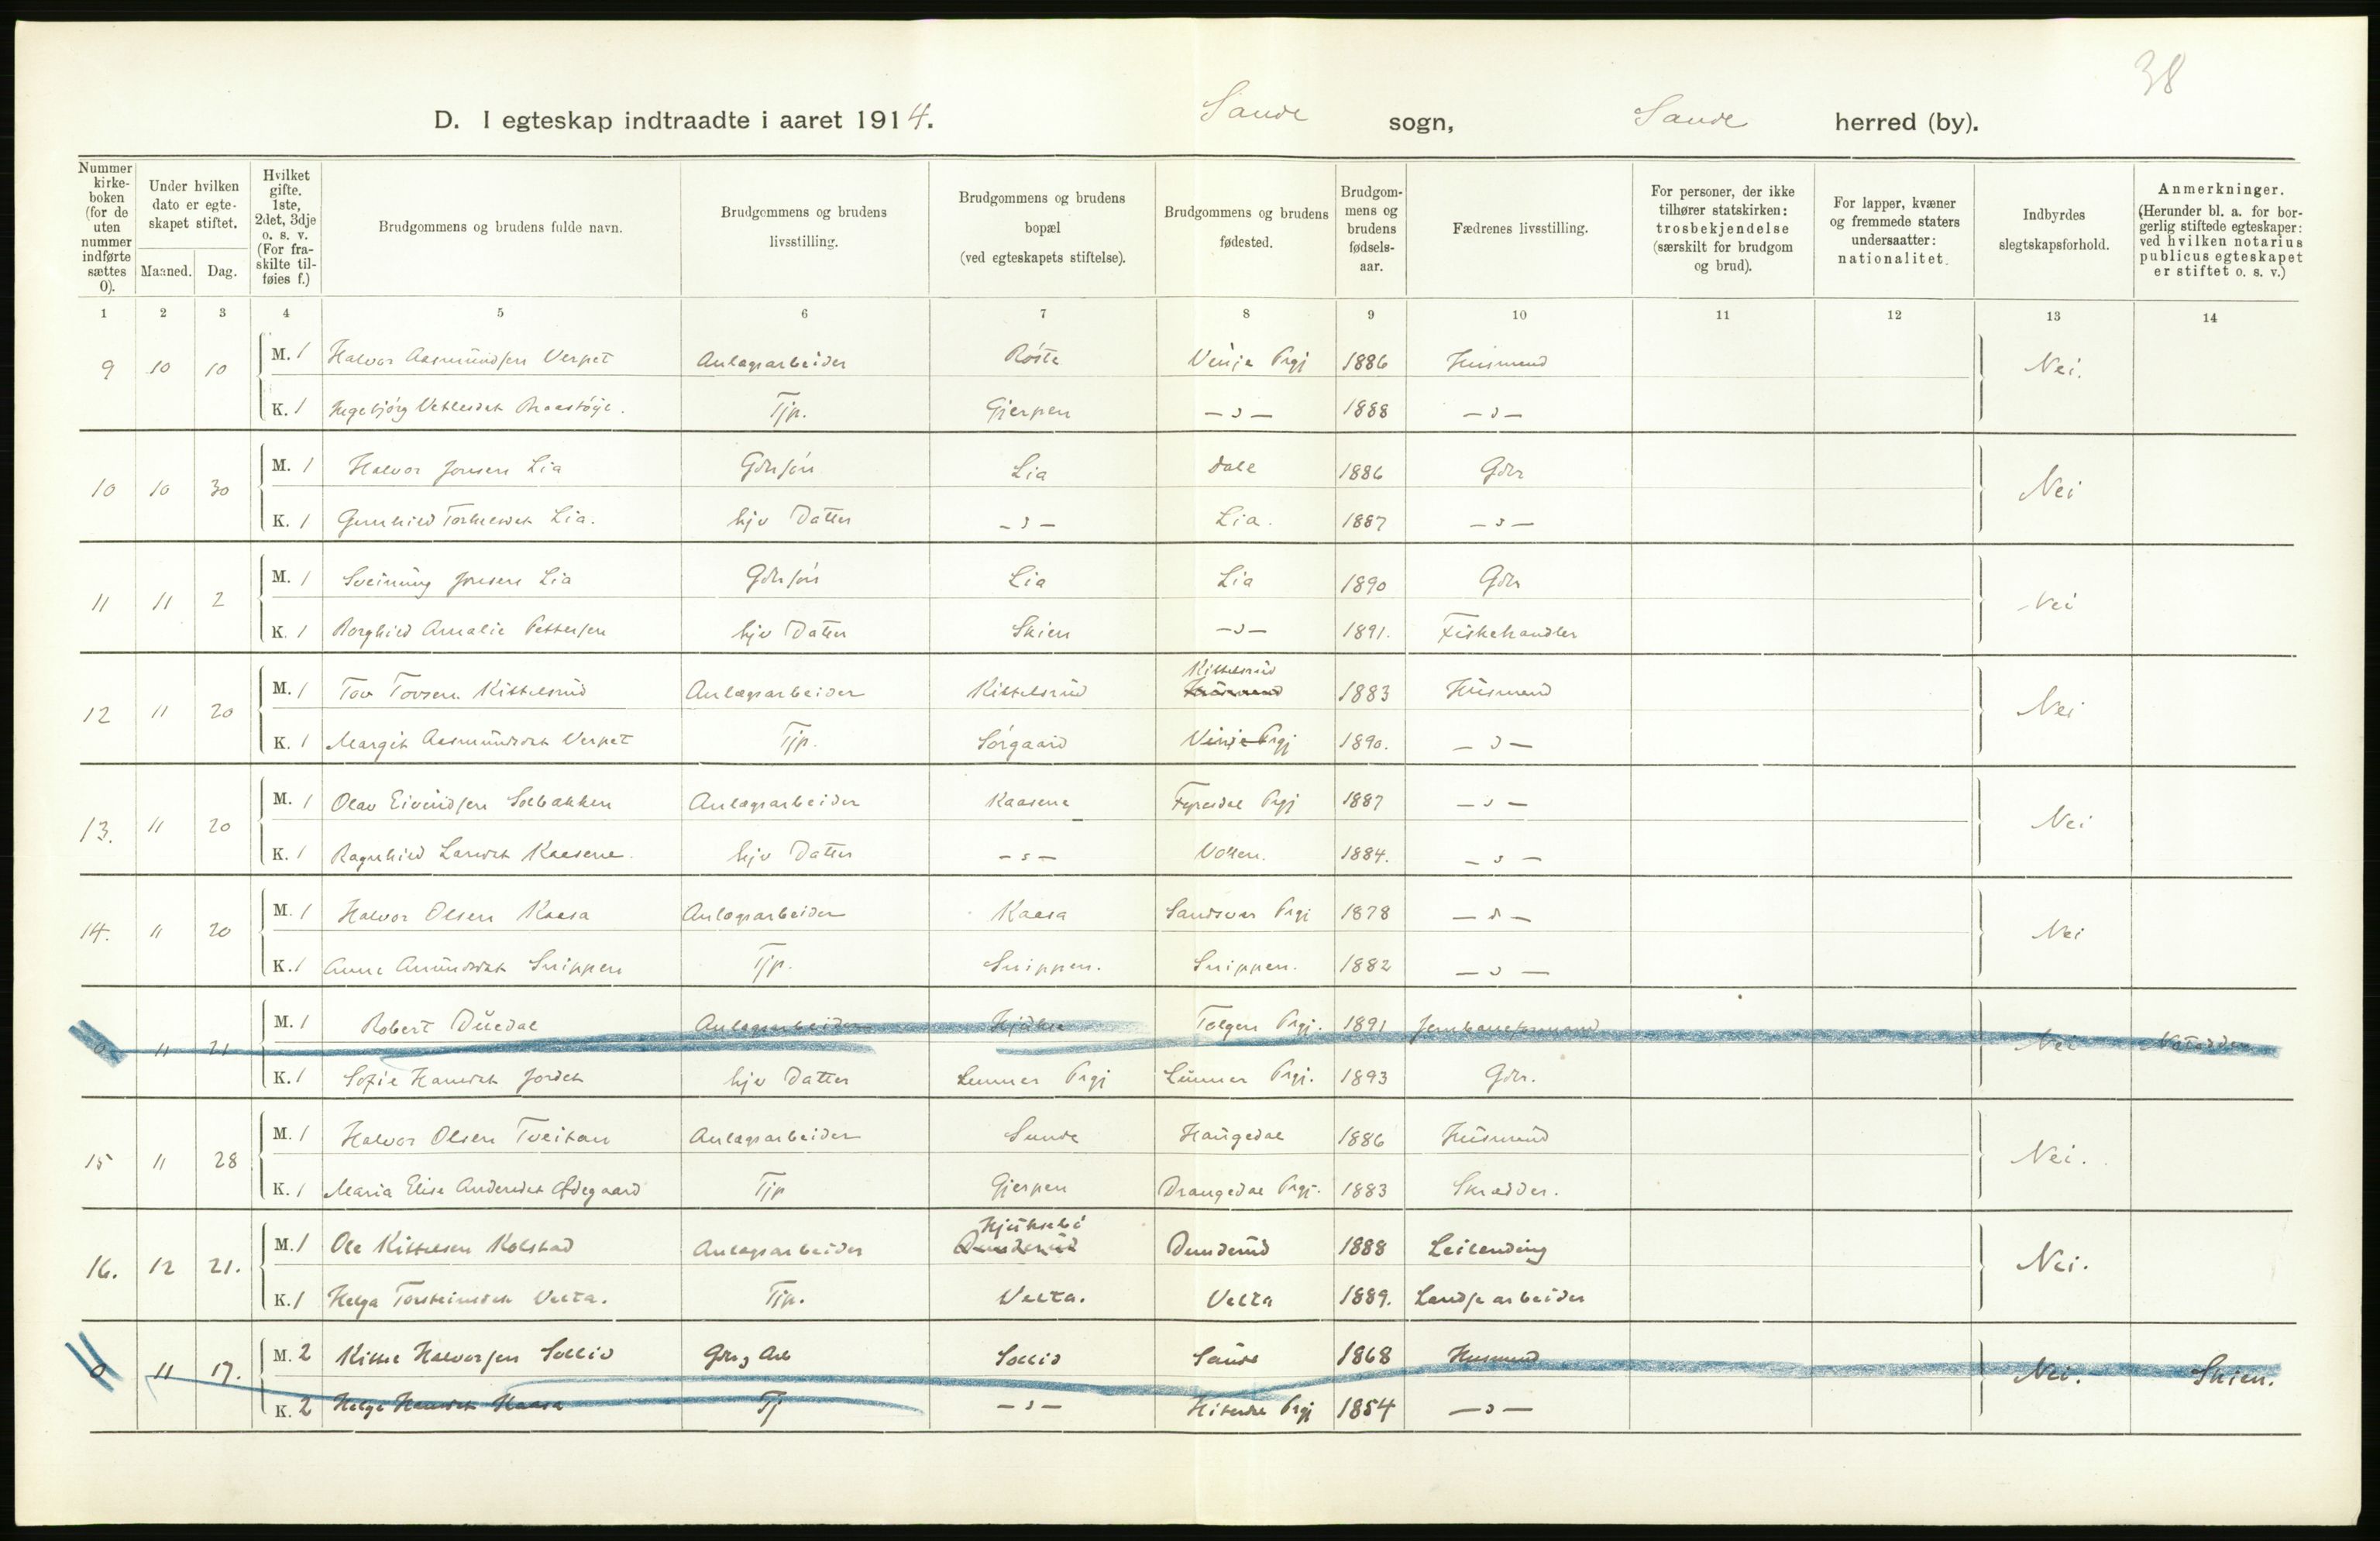 38
D. I egteskap indtraadte i aaret 1914. Saude sogn, Saude herred (by).
Nummer kirke-boken (for de uten nummer indførte sættes 0).
Under hvilken dato er egte-skapet stiftet.
Maaned. Dag.
Hvilket gifte. 1ste, 2det, 3dje o. s. v. (For fra-skilte til-føies f.)
Brudgommens og brudens fulde navn.
Brudgommens og brudens livsstilling.
Brudgommens og brudens bopæl (ved egteskapets stiftelse).
Brudgommens og brudens fødested.
Brudgom-mens og brudens fødsels-aar.
Fædrenes livsstilling.
For personer, der ikke tilhører statskirken: trosbekjendelse (særskilt for brudgom og brud).
For lapper, kvæner og fremmede staters undersaatter: nationalitet.
Indbyrdes slegtskapsforhold.
Anmerkninger. (Herunder bl. a. for bor-gerlig stiftede egteskaper: ved hvilken notarius publicus egteskapet er stiftet o. s. v.)
1 2 3 4 5 6 7 8 9 10 11 12 13 14
9 10 10 M. 1 Halvor Aasmundsen Verpet Anlægsarbeider Røste Vinje Prgj 1886 Husmand Nei.
K. 1 Ingebjørg Vetlesdat Gjerpen Tjp. — " — 1888 — " —
10 10 30 M. 1 Halvor Jonsen Lia Gdrsøn Lia Dale 1886 Gdr Nei
K. 1 Gunhild Torkelsdat Lia. hjv Datter — " — Lia. 1887 — " —
11 11 2 M. 1 Sveinung Jonsen Lia Gdrsøn Lia Lia 1890 Gdr Nei
K. 1 Borghild Amalie Pettersen hjv Datter Skien — " — 1891. Fiskehandler
12 11 20 M. 1 Tov Tovsen Kittelsrud Anlægsarbeider Kittelsrud Kittelsrud 1883 Husmand Nei
K. 1 Margit Aasmundsdat Verpet Tjp. Sørgaard Vinje Prgj 1890. — " —
13. 11 20 M. 1 Olav Eivindsen Solbakken Anlægsarbeider Kaasene Fyresdal Prgj 1887 — " — Nei
K. 1 Ragnhild Larsdat Kaasene. hjv Datter — " — Vollen. 1884. — " —
14. 11 20 M. 1 Halvor Olsen Kaasa Anlægsarbeider Kaasa Sandsvær Prgj 1878 — " — Nei
K. 1 Anne Amundsdat Snippen Tjp. Snippen. Snippen. 1882 — " —
0 11 21 M. 1 Robert Anlægsarbeider Hjukse Tolgen Prgj. 1891 Nei Notodden
K. 1 Sofie Hansdat Jordet hjv Datter Lunner Prgj Lunner Prgj. 1893 Gdr.
15 11 28 M. 1 Halvor Olsen Tveitan Anlægsarbeider Sunde Haugedal 1886 Husmand Nei.
K. 1 Maria Elise Andersdat Ødegaard Tjp Gjerpen Drangedal Prgj. 1883 Skrædder.
Hjuksebø
16. 12 21. M. 1 Ole Kittelsen Kolstad Anlægsarbeider Dunderud Dunderud 1888 Leilending Nei.
K. 1 Helga Torsteinsdat Velta. Tjp. Velta. Velta 1889. Landsearbeider
0 11 17. M. 2 Kittel Halvorsen Sollid Gdr, Arb Sollid Saude 1868 Husmand Nei. Skien.
K. 2 Helge Hansdat Kaasa Tj — " — Hiterdal Prgj 1854 — " —